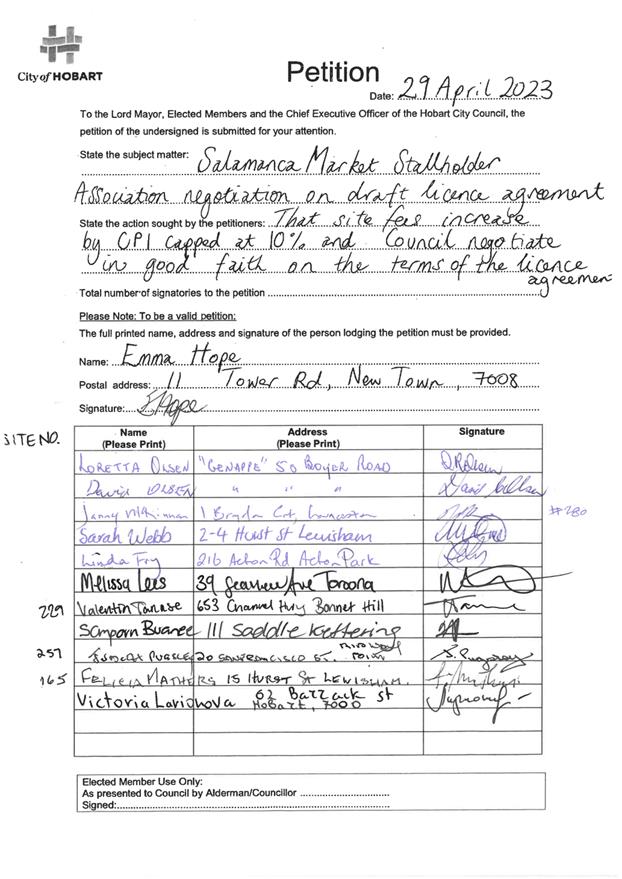 City of HOBART
Petition
Date: 29 April 2023
To the Lord Mayor, Elected Members and the Chief Executive Officer of the Hobart City Council, the
petition of the undersigned is submitted for your attention.
State the subject matter: Salamanca Market Stallholder
Association negotiation on draft licence agreement
State the action sought by the petitioners: That site fees increase
by CPI capped at 10% and Council negotiate
in good faith on the terms of the licence
agreement
Total number of signatories to the petition
Please Note: To be a valid petition:
The full printed name, address and signature of the person lodging the petition must be provided.
Name: Emma Hope
Postal address: 11 Tower Rd, New Town, 7008
Signature: EHope
SITE NO. Name Address Signature
(Please Print) (Please Print)
LORETTA OLSEN "GENAPPE" 50 BOYER ROAD
David OLSEN " " "
1 #280
Sarah Webb 2-4 Hurst St Lewisham
Linda Fry 216 Acton Rd Acton Park
Melissa Lees 39 Ave Taroona
229 Valentin 653 Channel Hwy Bonnet Hill
Somporn 111 Saddle Kettering
257 20 SAN FRANCISCO ST.
165 FELICIA MATHERS 15 HURST ST LEWISHAM.
Victoria Larionova 62 Barrack st
Hobart, 7000
Elected Member Use Only:
As presented to Council by Alderman/Councillor
Signed: